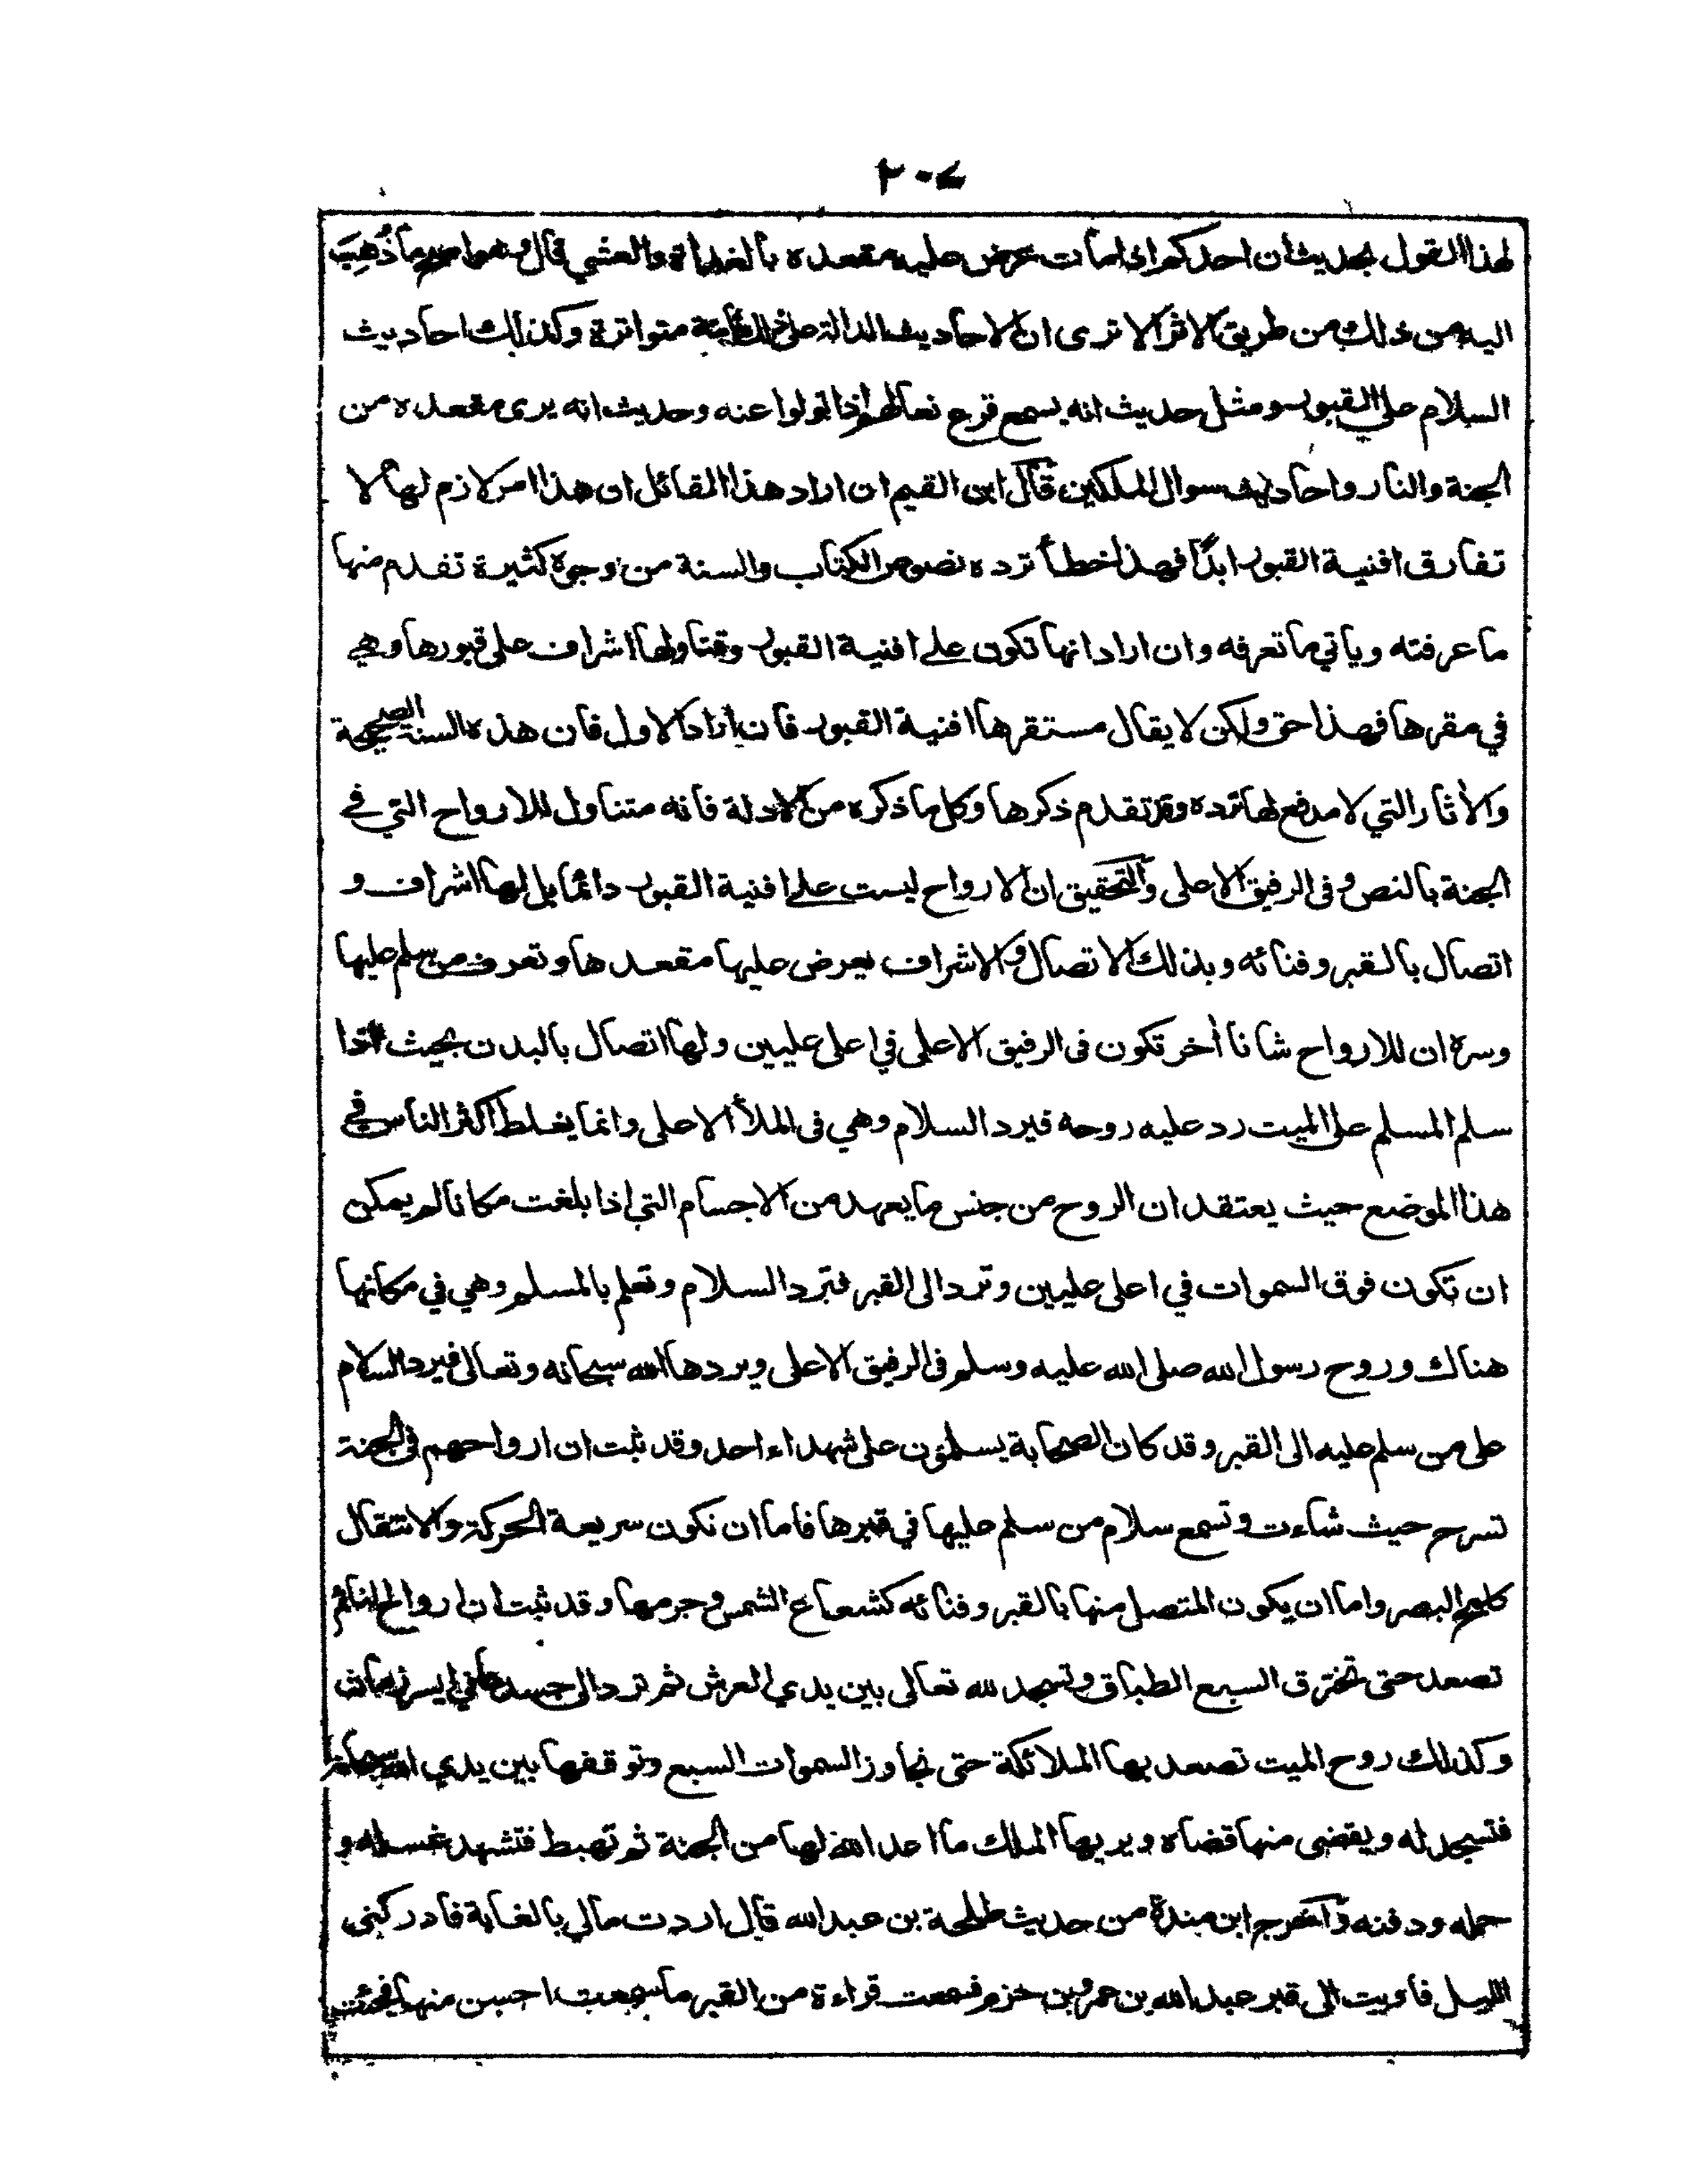 ٢٠٤
لهذا القول بحديث ان احدكم اذا مات عرض عليه مقعده بالغداة والعشي قال وهو اصح ما ذُهِبَ
اليه من ذلك من طريق الاثر الا ترى ان الاحاديث الدالة على ذلك ثابتة متواترة وكذلك احاديث
السلام على القبور ومثل حديث انه يسمع قرع نعالهم اذا تولوا عنه وحديث انه يرى مقعده من
الجنة والنار واحاديث سوال الملكين قال ابن القيم ان اراد هذا القائل ان هذا امر لازم لها لا
تفارق افنية القبور ابدًا فهذا خطأ ترده نصوص الكتاب والسنة من وجوه كثيرة تقدم منها
ما عرفته وياتي ما تعرفه وان اراد انها تكون على افنية القبور وقتا ولها اشراف على قبورها وهي
في مقرها فهذا حق ولكن لا يقال مستقرها افنية القبور فان اراد الاول فان هذه السنة الصحيحة
والأثار التي لا مدفع لها ترده وقد تقدم ذكرها وكل ما ذكره من الادلة فانه متناول للارواح التي في
الجنة بالنص وفى الرفيق الاعلى والتحقيق ان الارواح ليست على افنية القبور دائما بل لها اشراف و
اتصال بالقبر وفنائه وبذلك الاتصال والاشراف يعرض عليها مقعدها وتعرف من سلم عليها
وسره ان للارواح شانا أخر تكون فى الرفيق الاعلى في اعلى عليين ولها اتصال بالبدن بحيث اذا
سلم المسلم على الميت رد عليه روحه فيرد السلام وهي فى الملأ الاعلى وانما يغلط اكثر الناس في
هذا الموضع حيث يعتقد ان الروح من جنس ما يعهد من الاجسام التي اذا بلغت مكانا لم يمكن
ان تكون فوق السموات في اعلى عليين وترد الى القبر فترد السلام وتعلم بالمسلم وهي في مكانها
هناك وروح رسول الله صلى الله عليه وسلم فى الرفيق الاعلى ويردها الله سبحانه وتعالى فيرد السلام
على من سلم عليه الى القبر وقد كان الصحابة يسلمون على شهداء احد وقد ثبت ان ارواحهم فى الجنة
تسرح حيث شاءت وتسمع سلام من سلم عليها في قبرها فاما ان تكون سريعة الحركة والانتقال
كلمح البصر واما ان يكون المتصل منها بالقبر وفنائه كشعاع الشمس وجرمها وقد ثبت ان ارواح النائم
تصعد حتى تخترق السبع الطباق وتسجد لله تعالى بين يدي العرش ثم ترد الى جسدها في ايسر زمان
وكذلك روح الميت تصعد بها الملائكة حتى تجاوز السموات السبع وتوقفها بين يدي الله سبحانه
فتسجد له ويقضى منها قضاه ويريها الملك ما اعد الله لها من الجنة ثم تهبط فتشهد غسله و
حمله ودفنه وآخرج ابن مندة من حديث طلحة بن عبد الله قال اردت مالي بالغابة فادركني
الليل فاويت الى قبر عبد الله بن عمرو بن حزم فسمعت قراءة من القبر ما سمعت احسن منها فجئت